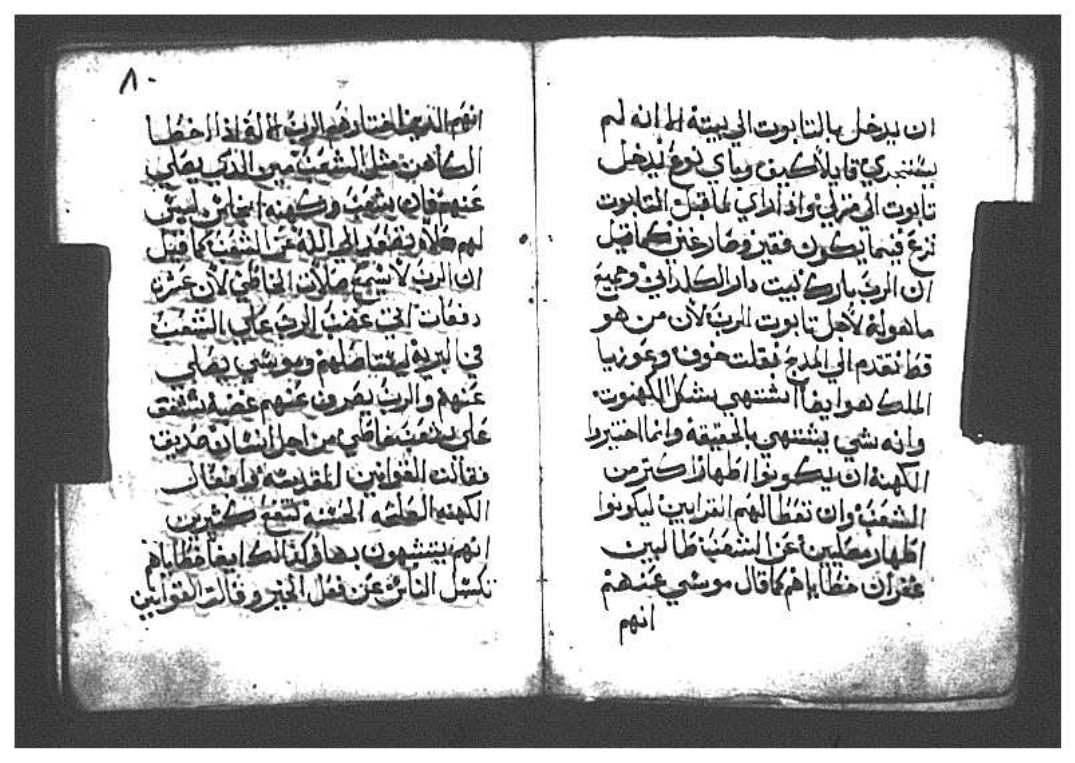 ان يدخل بالتابوت الي بيته الا انه لم
يستجري قايلا كيف وباي نوع يدخل
تابوت الي منزلي واذ اراي لما قبل التابوت
نزع فيما يكون فقير وصار غني كما قيل
ان الرب بارك بيت دار الكلداني وجميع
ما هو له لاجل تابوت الرب لان من هو
قط تقدم الي المدبح بقلت خوف وعوزيا
الملك هو ايضا اشتهي بشكل الكهنوت
وانه شي يشتهي بالحقيقة وانما اختيروا
الكهنة ان يكونوا اطهار اكتر من
الشعب وان تعطا لهم القرابين ليكونوا
اطهار مصليين عن الشعب طالبين
غفران خطاياهم كما قال موسي عنهم
انهم
٨٠
انهم الذين اختارهم الرب الاله اذا اخطا
الكاهن مثل الشعب فمن الذي يصلي
عنهم فان شعب وكهنه انجاس ليس
لهم صلاه تصعد الي الله عن الشعب كما قيل
ان الرب لا يسمع صلات الخاطي لان عشرة
دفعات اتي غضب الرب علي الشعب
في البرية ليستاصلهم وموسي يصلي
عنهم والرب يصرف عنهم غضبه يشفق
علي شعب خاطي من اجل انسان صديق
فقالت القوانين المقدسه وافعال
الكهنه الصالحه الحسنه تنفع كثيرين
انهم يتشبهون بها وكذالك ايضا خطاياهم
تكسل الناس عن فعل الخير وقالت القوانين